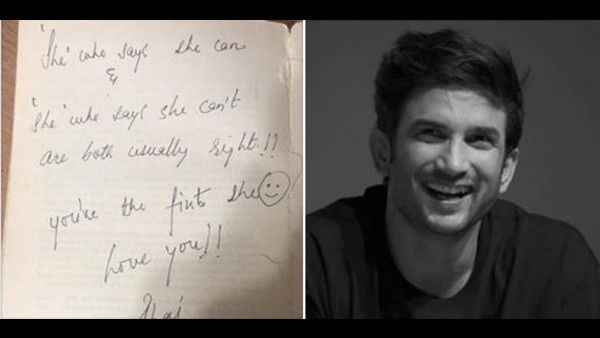 'She' who says she can
&
'She' who says she can't
are both usually right!!
you're the first she
Love you!!